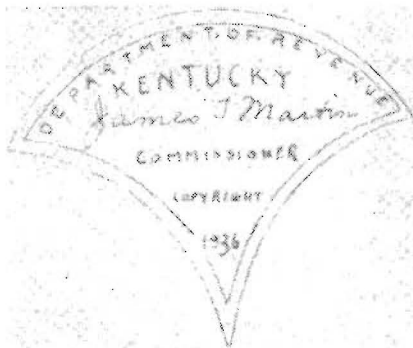 DEPARTMENT.OF.REVENUE
KENTUCKY
James T Martin
COMMISSIONER
COPYRIGHT
1936